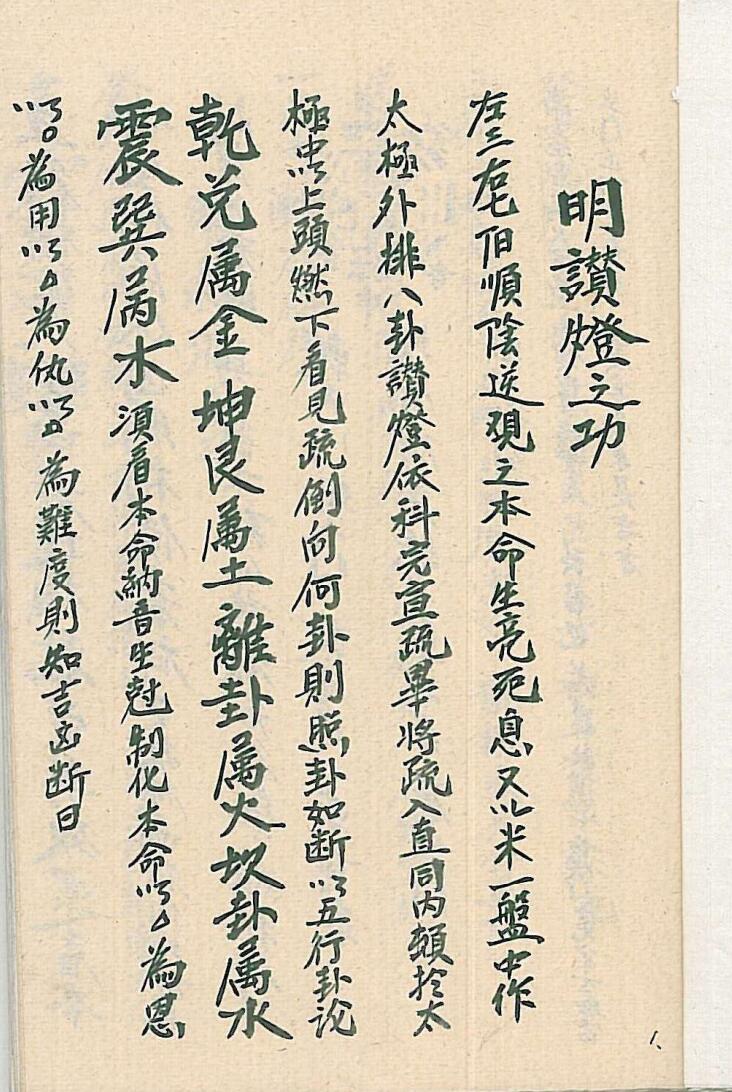 明讚燈之功
左三右七陌順陰逆觀之本命生亮死息又以米一盤中作
太極外排八卦讚燈依科完宣疏畢將疏入直同內頓扵太
極虫以上頭燃下看見疏倒向何卦則照卦如斷以五行卦论
乾兑属金坤艮属土離卦属火坎卦属水
震巽属木須看本命納音生尅制化本命以為恩
以為用以為仇以為難度則知吉凶断曰